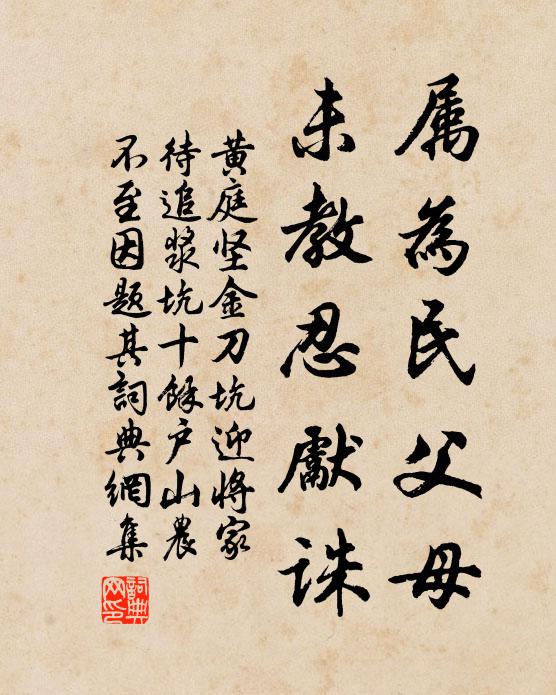 属為民父母
未教忍獻誅
黄庭坚金刀坑迎将家
待追漿坑十餘户山農
不至因题其詞典網集
詞典
網印